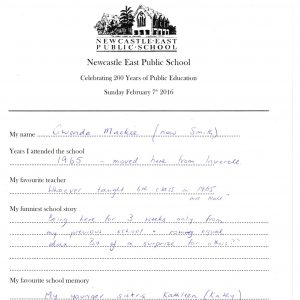 NEWCASTLE·EAST
PUBLIC·SCHOOL
Newcastle East Public School
Celebrating 200 Years of Public Education
Sunday February 7th 2016
My name Gwenda Mackee (now Smith)
Years I attended the school
1965 - moved here from Inverell
My favourite teacher
Whoever taught 6th class in 1965
My funniest school story
Being here for 3 weeks only from
my previous school & coming equal
dux. Bit of a surprise for others!!
My favourite school memory
My younger sister Kathleen (Kathy)